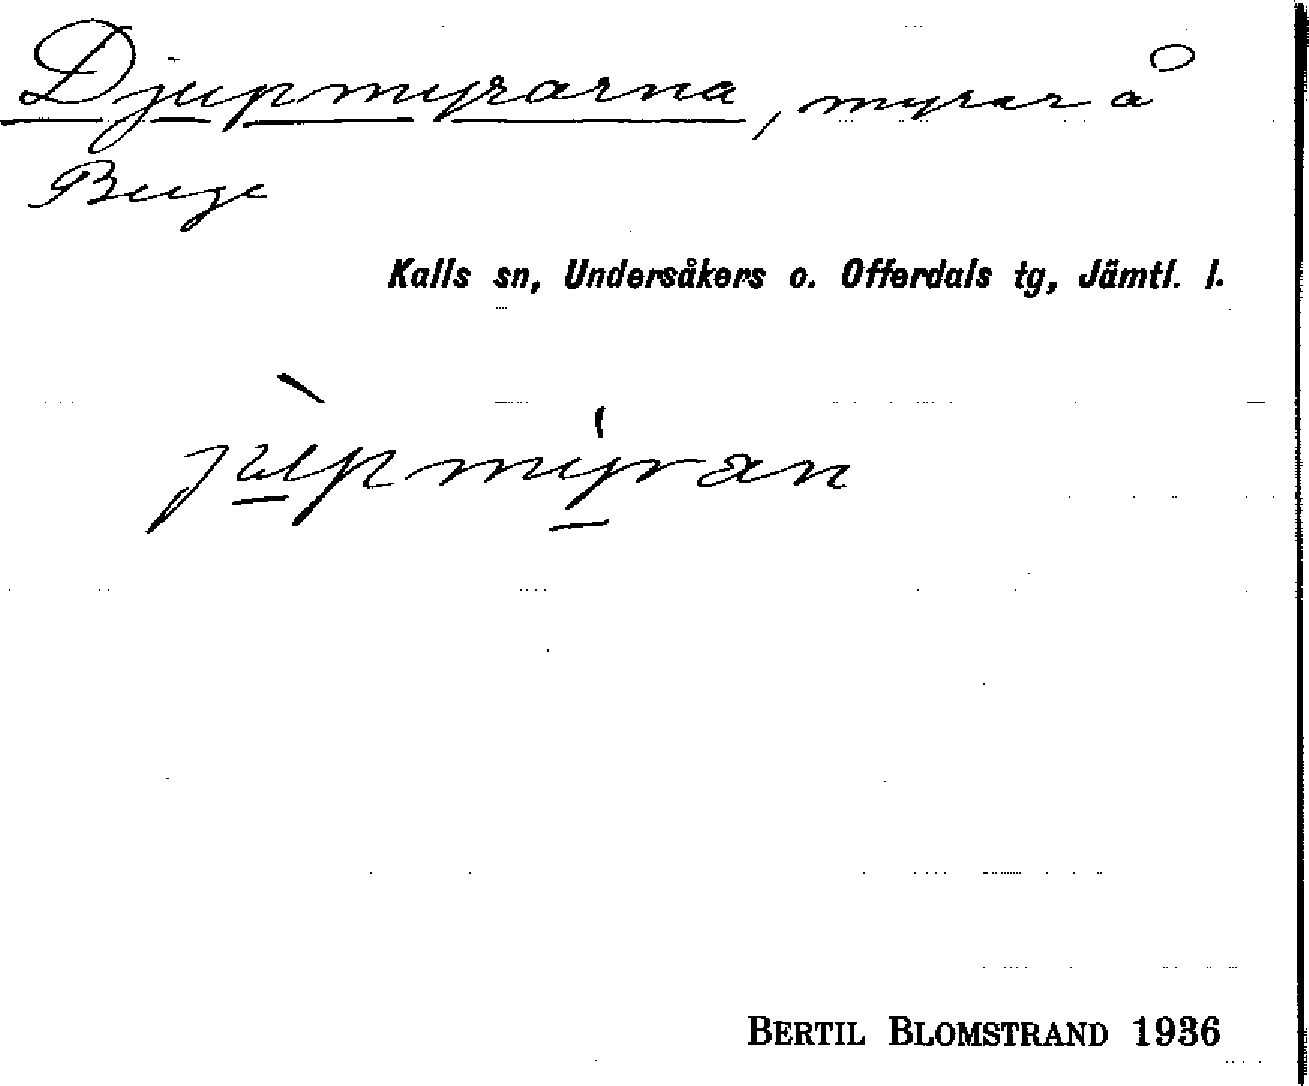 Djupmyrarna, myrar å
Buge
Kalls sn, Undersåkers o. Offerdals tg, Jämtl. l.
jùpmýran
BERTIL BLOMSTRAND 1936